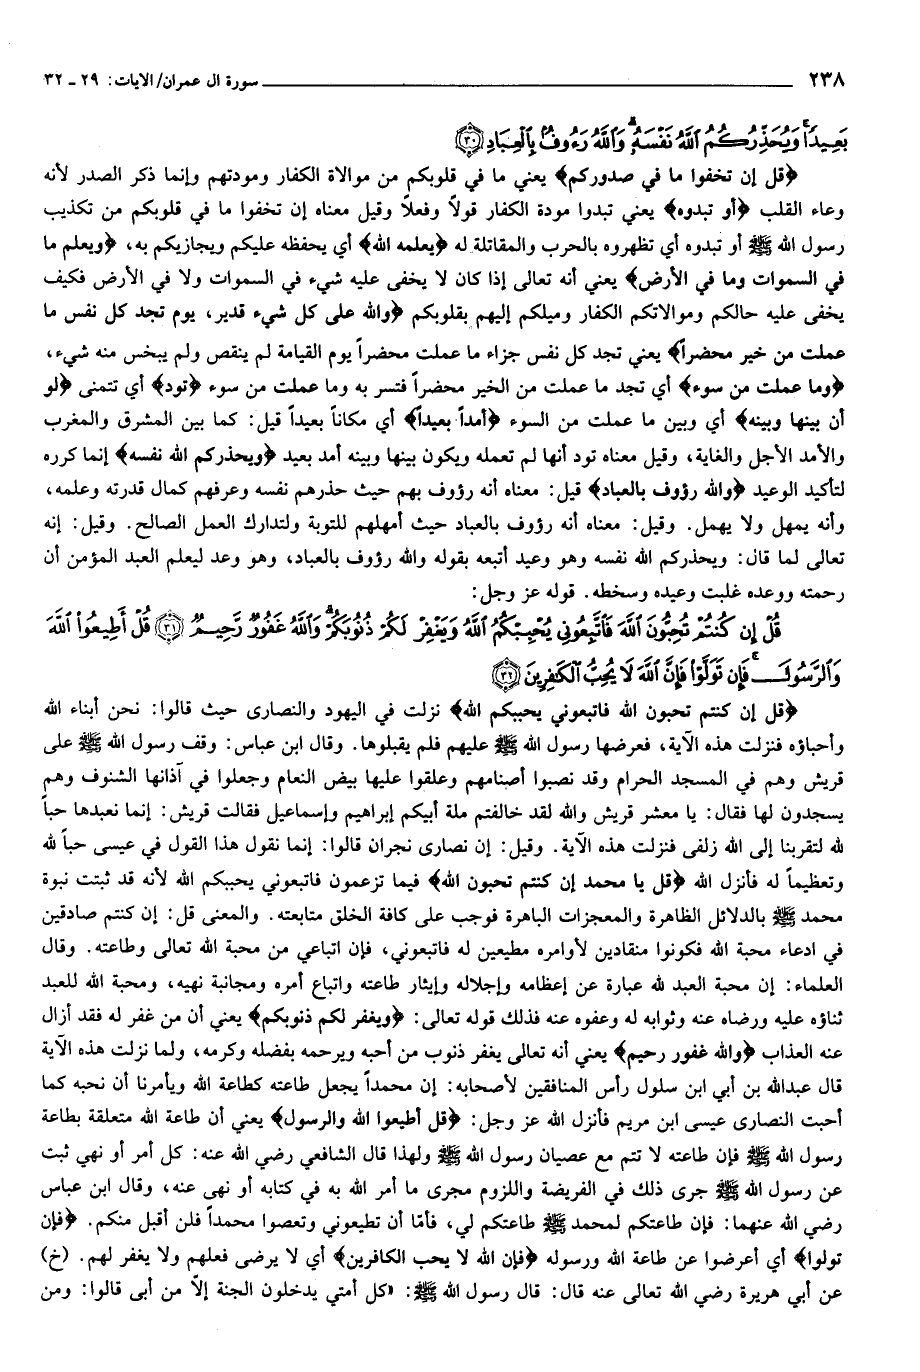 ٢٣٨ سورة آل عمران/ الآيات: ٢٩ ـ ٣٢
بَعِيدًا وَيُحَذِّرُكُمُ ٱللَّهُ نَفْسَهُۥ وَٱللَّهُ رَءُوفٌۢ بِٱلْعِبَادِ ﴿٣٠﴾
﴿قل إن تخفوا ما في صدوركم﴾ يعني ما في قلوبكم من موالاة الكفار ومودتهم وإنما ذكر الصدر لأنه
وعاء القلب ﴿أو تبدوه﴾ يعني تبدوا مودة الكفار قولاً وفعلاً وقيل معناه إن تخفوا ما في قلوبكم من تكذيب
رسول الله ﷺ أو تبدوه أي تظهروه بالحرب والمقاتلة له ﴿يعلمه الله﴾ أي يحفظه عليكم ويجازيكم به، ﴿ويعلم ما
في السموات وما في الأرض﴾ يعني أنه تعالى إذا كان لا يخفى عليه شيء في السموات ولا في الأرض فكيف
يخفى عليه حالكم وموالاتكم الكفار وميلكم إليهم بقلوبكم ﴿والله على كل شيء قدير، يوم تجد كل نفس ما
عملت من خير محضراً﴾ يعني تجد كل نفس جزاء ما عملت محضراً يوم القيامة لم ينقص ولم يبخس منه شيء،
﴿وما عملت من سوء﴾ أي تجد ما عملت من الخير محضراً فتسر به وما عملت من سوء ﴿تود﴾ أي تتمنى ﴿لو
أن بينها وبينه﴾ أي وبين ما عملت من السوء ﴿أمداً بعيداً﴾ أي مكاناً بعيداً قيل: كما بين المشرق والمغرب
والأمد الأجل والغاية، وقيل معناه تود أنها لم تعمله ويكون بينها وبينه أمد بعيد ﴿ويحذركم الله نفسه﴾ إنما كرره
لتأكيد الوعيد ﴿والله رؤوف بالعباد﴾ قيل: معناه أنه رؤوف بهم حيث حذرهم نفسه وعرفهم كمال قدرته وعلمه،
وأنه يمهل ولا يهمل. وقيل: معناه أنه رؤوف بالعباد حيث أمهلهم للتوبة ولتدارك العمل الصالح. وقيل: إنه
تعالى لما قال: ويحذركم الله نفسه وهو وعيد أتبعه بقوله والله رؤوف بالعباد، وهو وعد ليعلم العبد المؤمن أن
رحمته ووعده غلبت وعيده وسخطه. قوله عز وجل:
قُلْ إِن كُنتُمْ تُحِبُّونَ ٱللَّهَ فَٱتَّبِعُونِي يُحْبِبْكُمُ ٱللَّهُ وَيَغْفِرْ لَكُمْ ذُنُوبَكُمْ وَٱللَّهُ غَفُورٌ رَّحِيمٌ ﴿٣١﴾ قُلْ أَطِيعُوا۟ ٱللَّهَ
وَٱلرَّسُولَ فَإِن تَوَلَّوْا۟ فَإِنَّ ٱللَّهَ لَا يُحِبُّ ٱلْكَٰفِرِينَ ﴿٣٢﴾
﴿قل إن كنتم تحبون الله فاتبعوني يحببكم الله﴾ نزلت في اليهود والنصارى حيث قالوا: نحن أبناء الله
وأحباؤه فنزلت هذه الآية، فعرضها رسول الله ﷺ عليهم فلم يقبلوها. وقال ابن عباس: وقف رسول الله ﷺ على
قريش وهم في المسجد الحرام وقد نصبوا أصنامهم وعلقوا عليها بيض النعام وجعلوا في آذانها الشنوف وهم
يسجدون لها فقال: يا معشر قريش والله لقد خالفتم ملة أبيكم إبراهيم وإسماعيل فقالت قريش: إنما نعبدها حباً
لله لتقربنا إلى الله زلفى فنزلت هذه الآية. وقيل: إن نصارى نجران قالوا: إنما نقول هذا القول في عيسى حباً لله
وتعظيماً له فأنزل الله ﴿قل يا محمد إن كنتم تحبون الله﴾ فيما تزعمون فاتبعوني يحببكم الله لأنه قد ثبتت نبوة
محمد ﷺ بالدلائل الظاهرة والمعجزات الباهرة فوجب على كافة الخلق متابعته. والمعنى قل: إن كنتم صادقين
في ادعاء محبة الله فكونوا منقادين لأوامره مطيعين له فاتبعوني، فإن اتباعي من محبة الله تعالى وطاعته. وقال
العلماء: إن محبة العبد لله عبارة عن إعظامه وإجلاله وإيثار طاعته واتباع أمره ومجانبة نهيه، ومحبة الله للعبد
ثناؤه عليه ورضاه عنه وثوابه له وعفوه عنه فذلك قوله تعالى: ﴿ويغفر لكم ذنوبكم﴾ يعني أن من غفر له فقد أزال
عنه العذاب ﴿والله غفور رحيم﴾ يعني أنه تعالى يغفر ذنوب من أحبه ويرحمه بفضله وكرمه، ولما نزلت هذه الآية
قال عبدالله بن أبي ابن سلول رأس المنافقين لأصحابه: إن محمداً يجعل طاعته كطاعة الله ويأمرنا أن نحبه كما
أحبت النصارى عيسى ابن مريم فأنزل الله عز وجل: ﴿قل أطيعوا الله والرسول﴾ يعني أن طاعة الله متعلقة بطاعة
رسول الله ﷺ فإن طاعته لا تتم مع عصيان رسول الله ﷺ ولهذا قال الشافعي رضي الله عنه: كل أمر أو نهي ثبت
عن رسول الله ﷺ جرى ذلك في الفريضة واللزوم مجرى ما أمر الله به في كتابه أو نهى عنه، وقال ابن عباس
رضي الله عنهما: فإن طاعتكم لمحمد ﷺ طاعتكم لي، فأمّا أن تطيعوني وتعصوا محمداً فلن أقبل منكم. ﴿فإن
تولوا﴾ أي أعرضوا عن طاعة الله ورسوله ﴿فإن الله لا يحب الكافرين﴾ أي لا يرضى فعلهم ولا يغفر لهم. (خ)
عن أبي هريرة رضي الله تعالى عنه قال: قال رسول الله ﷺ: «كل أمتي يدخلون الجنة إلاّ من أبى قالوا: ومن